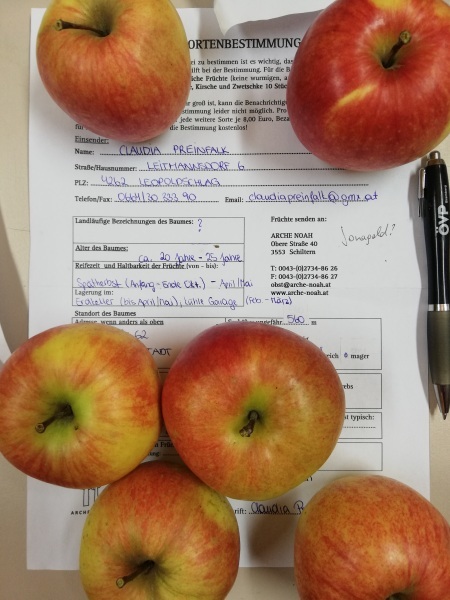 ORTENBESTIMMUNG
ei zu bestimmen ist es wichtig, das
ilft bei der Bestimmung. Für die B
liche Früchte (keine wurmigen, a
, Kirsche und Zwetschke 10 Stüc
groß ist, kann die Benachrichtig
stimmung leider nicht möglich. Pro
jede weitere Sorte je 8,00 Euro, Beza
die Bestimmung kostenlos!
Einsender:
Name: CLAUDIA PREINFALK
Straße/Hausnummer: LEITMANNSDORF 6
PLZ: 4262 LEOPOLDSCHLAG
Telefon/Fax: 0664/30 333 90 Email: claudiapreinfalk@gmx.at
Landläufige Bezeichnungen des Baumes: ?
Früchte senden an:
ARCHE NOAH
Obere Straße 40
3553 Schiltern
Jonagold?
Alter des Baumes:
ca. 20 Jahre - 25 Jahre
Reifezeit und Haltbarkeit der Früchte (von – bis):
Spätherbst (Anfang - Ende Okt.) - April/Mai
Lagerung im:
Erdkeller (bis April/Mai), kühle Garage (Feb. - März)
T: 0043-(0)2734-86 26
F: 0043-(0)2734-86 27
obst@arche-noah.at
www.arche-noah.at
Standort des Baumes
Adresse, wenn anders als oben
560 m
62
TADT
eich
mager
ebs
st typisch:
ARCHE
rift: Claudia P
ÖVP